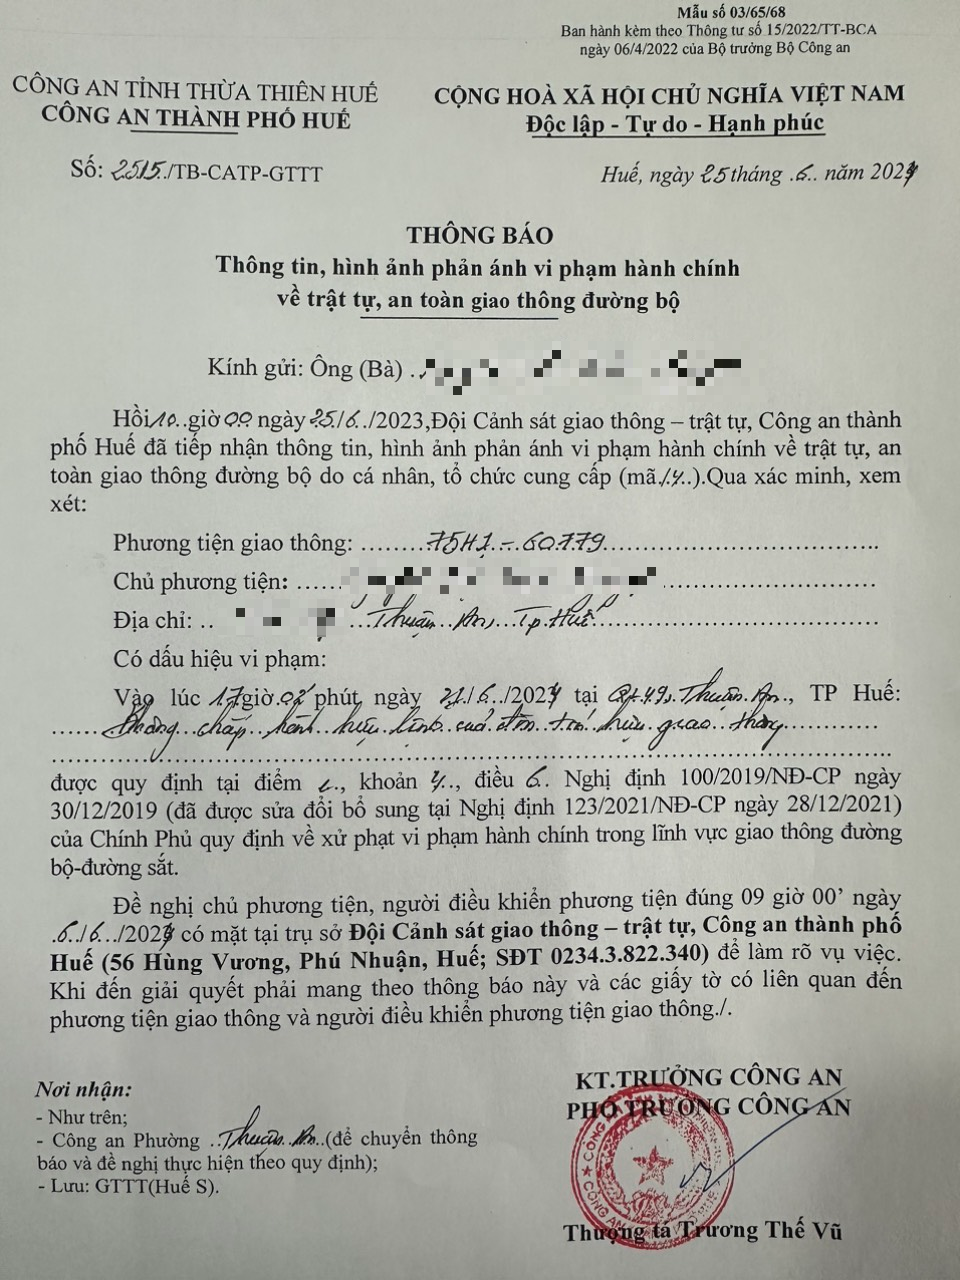 Mẫu số 03/65/68
Ban hành kèm theo Thông tư số 15/2022/TT-BCA
ngày 06/4/2022 của Bộ trưởng Bộ Công an
CÔNG AN TỈNH THỪA THIÊN HUẾ
CÔNG AN THÀNH PHỐ HUẾ
CỘNG HOÀ XÃ HỘI CHỦ NGHĨA VIỆT NAM
Độc lập - Tự do - Hạnh phúc
Số: 2515./TB-CATP-GTTT
Huế, ngày 25 tháng .6.. năm 2024
THÔNG BÁO
Thông tin, hình ảnh phản ánh vi phạm hành chính
về trật tự, an toàn giao thông đường bộ
Kính gửi: Ông (Bà) ..
Hồi 10..giờ 00 ngày 25/6../2023,Đội Cảnh sát giao thông – trật tự, Công an thành
phố Huế đã tiếp nhận thông tin, hình ảnh phản ánh vi phạm hành chính về trật tự, an
toàn giao thông đường bộ do cá nhân, tổ chức cung cấp (mã ).Qua xác minh, xem
xét:
Phương tiện giao thông: ........75H1 - 60779..............................
Chủ phương tiện: ......
Địa chỉ: .. ...Thuận An, Tp Huế..............................
Có dấu hiệu vi phạm:
Vào lúc 17 giờ 02 phút, ngày 21/6../2024 tại QL49B Thuận An., TP Huế:
......Không chấp hành hiệu lệnh của đèn tín hiệu giao thông..........
được quy định tại điểm , khoản 4.., điều 6. Nghị định 100/2019/NĐ-CP ngày
30/12/2019 (đã được sửa đổi bổ sung tại Nghị định 123/2021/NĐ-CP ngày 28/12/2021)
của Chính Phủ quy định về xử phạt vi phạm hành chính trong lĩnh vực giao thông đường
bộ-đường sắt.
Đề nghị chủ phương tiện, người điều khiển phương tiện đúng 09 giờ 00’ ngày
.6./6../2024 có mặt tại trụ sở Đội Cảnh sát giao thông – trật tự, Công an thành phố
Huế (56 Hùng Vương, Phú Nhuận, Huế; SĐT 0234.3.822.340) để làm rõ vụ việc.
Khi đến giải quyết phải mang theo thông báo này và các giấy tờ có liên quan đến
phương tiện giao thông và người điều khiển phương tiện giao thông./.
Nơi nhận:
- Như trên;
- Công an Phường ..Thuận An..(để chuyển thông
báo và đề nghị thực hiện theo quy định);
- Lưu: GTTT(Huế S).
KT.TRƯỞNG CÔNG AN
PHÓ TRƯỞNG CÔNG AN
Thượng tá Trương Thế Vũ